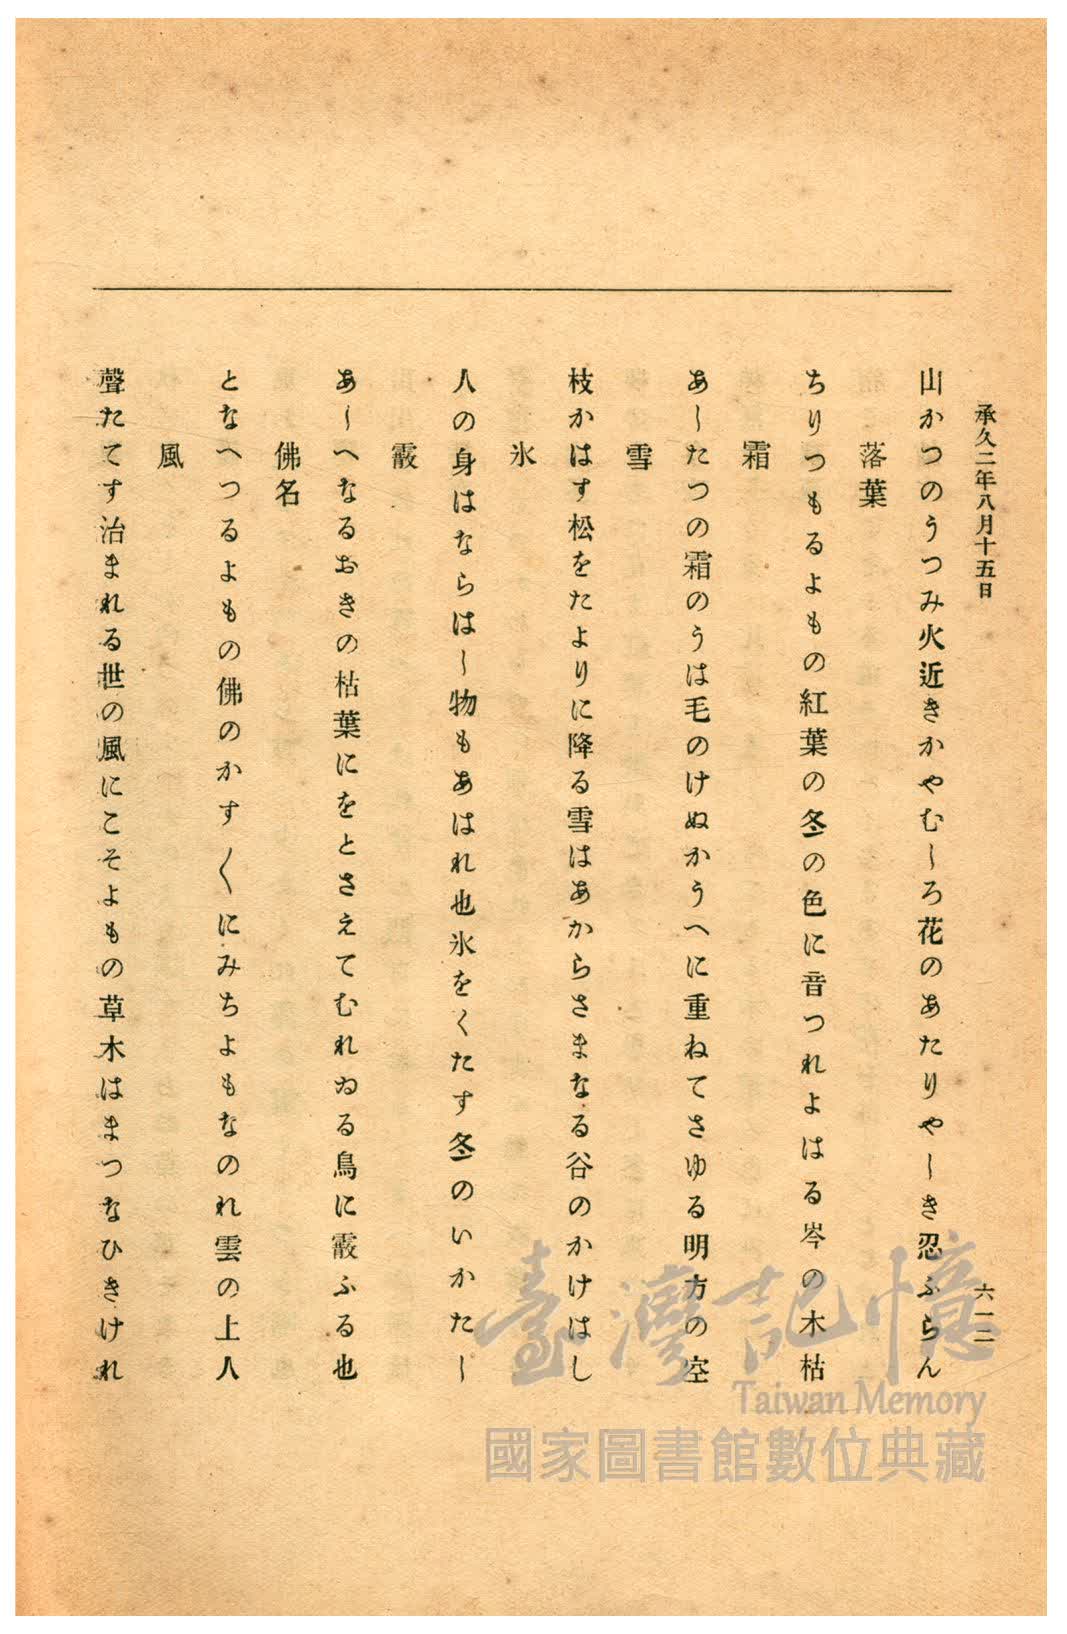 承久二年八月十五日
六一二
山かつのうつみ火近きかやむしろ花のあたりやしき忍ふらん
落葉
ちりつもるよもの紅葉の冬の色に音つれよはる岑の木枯
霜
あしたつの霜のうは毛のけぬかうへに重ねてさゆる明方の空
雪
枝かはす松をたよりに降る雪はあからさまなる谷のかけはし
氷
人の身はならはし物もあはれ也氷をくたす冬のいかたし
霰
あしへなるおきの枯葉にをとさえてむれゐる鳥に霰ふる也
佛名
となへつるよもの佛のかす〱にみちよもなのれ雲の上人
風
聲たてす治まれる世の風にこそよもの草木はまつなひきけれ
臺灣記憶
Taiwan Memory
國家圖書館數位典藏